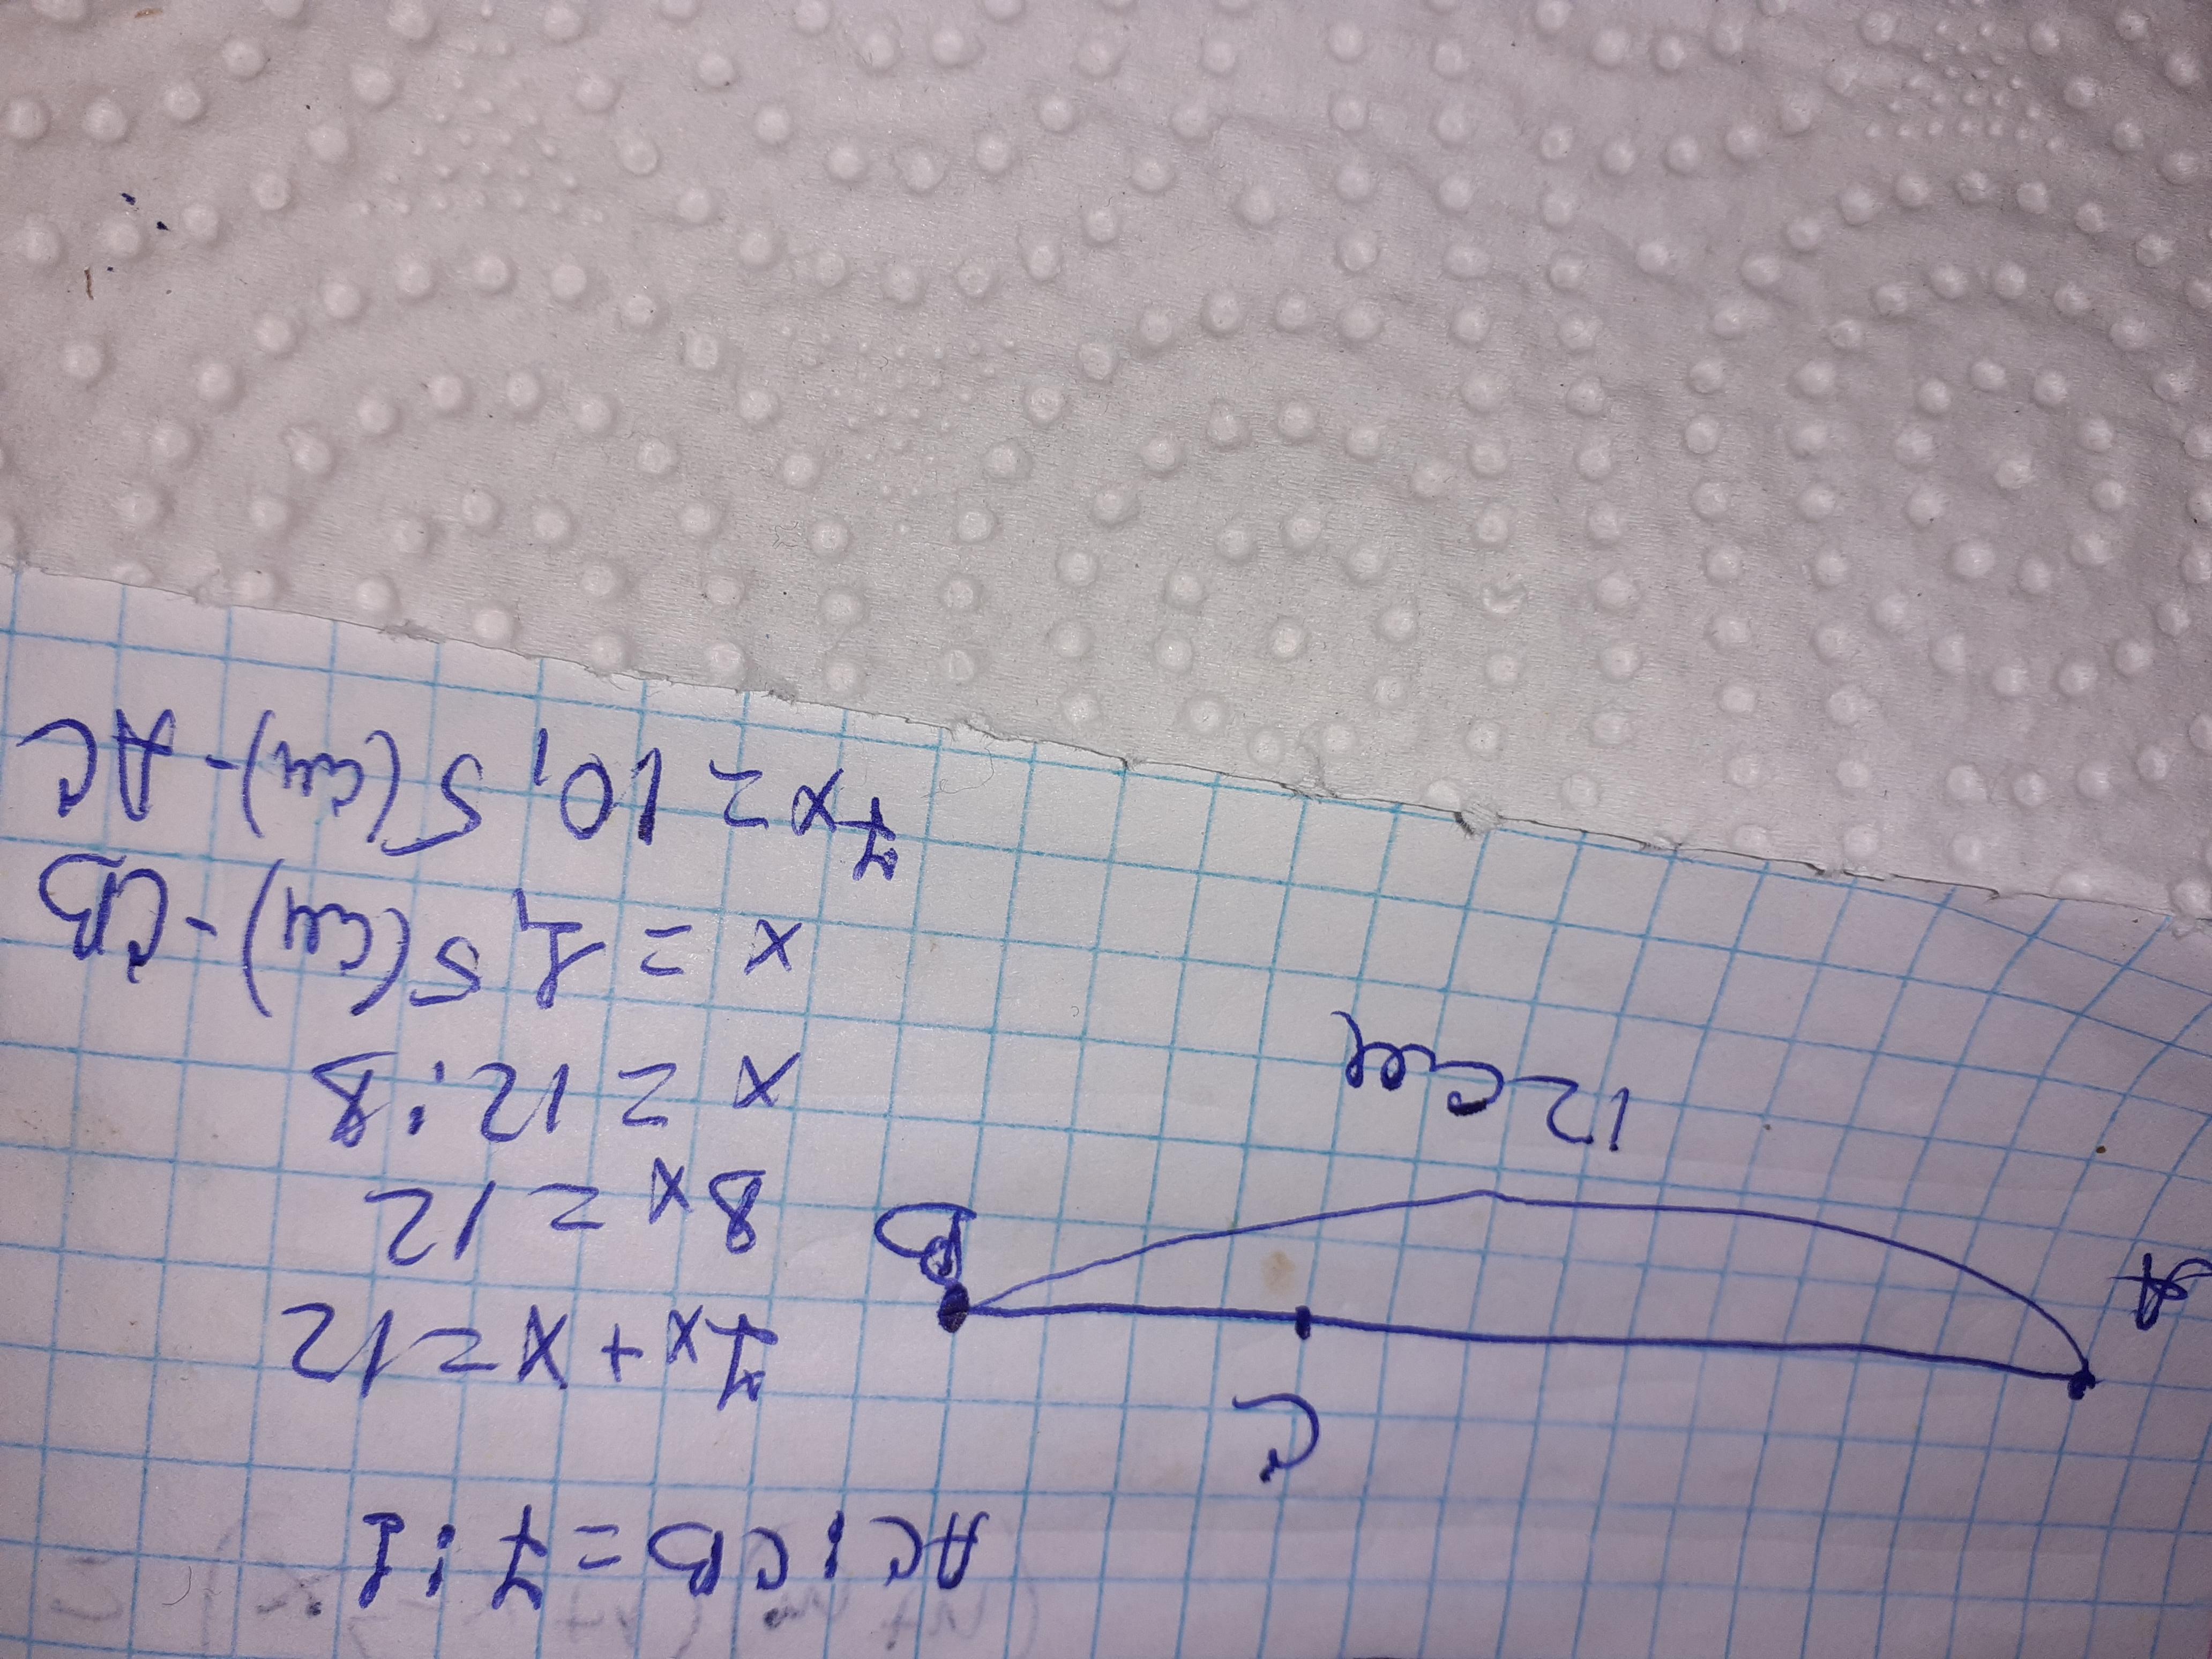 AC : CB = 7 : 1
C
A
B
12 см
7x + x = 12
8x = 12
x = 12 : 8
x = 1,5 (см) - CB
7x = 10,5 (см) - AC